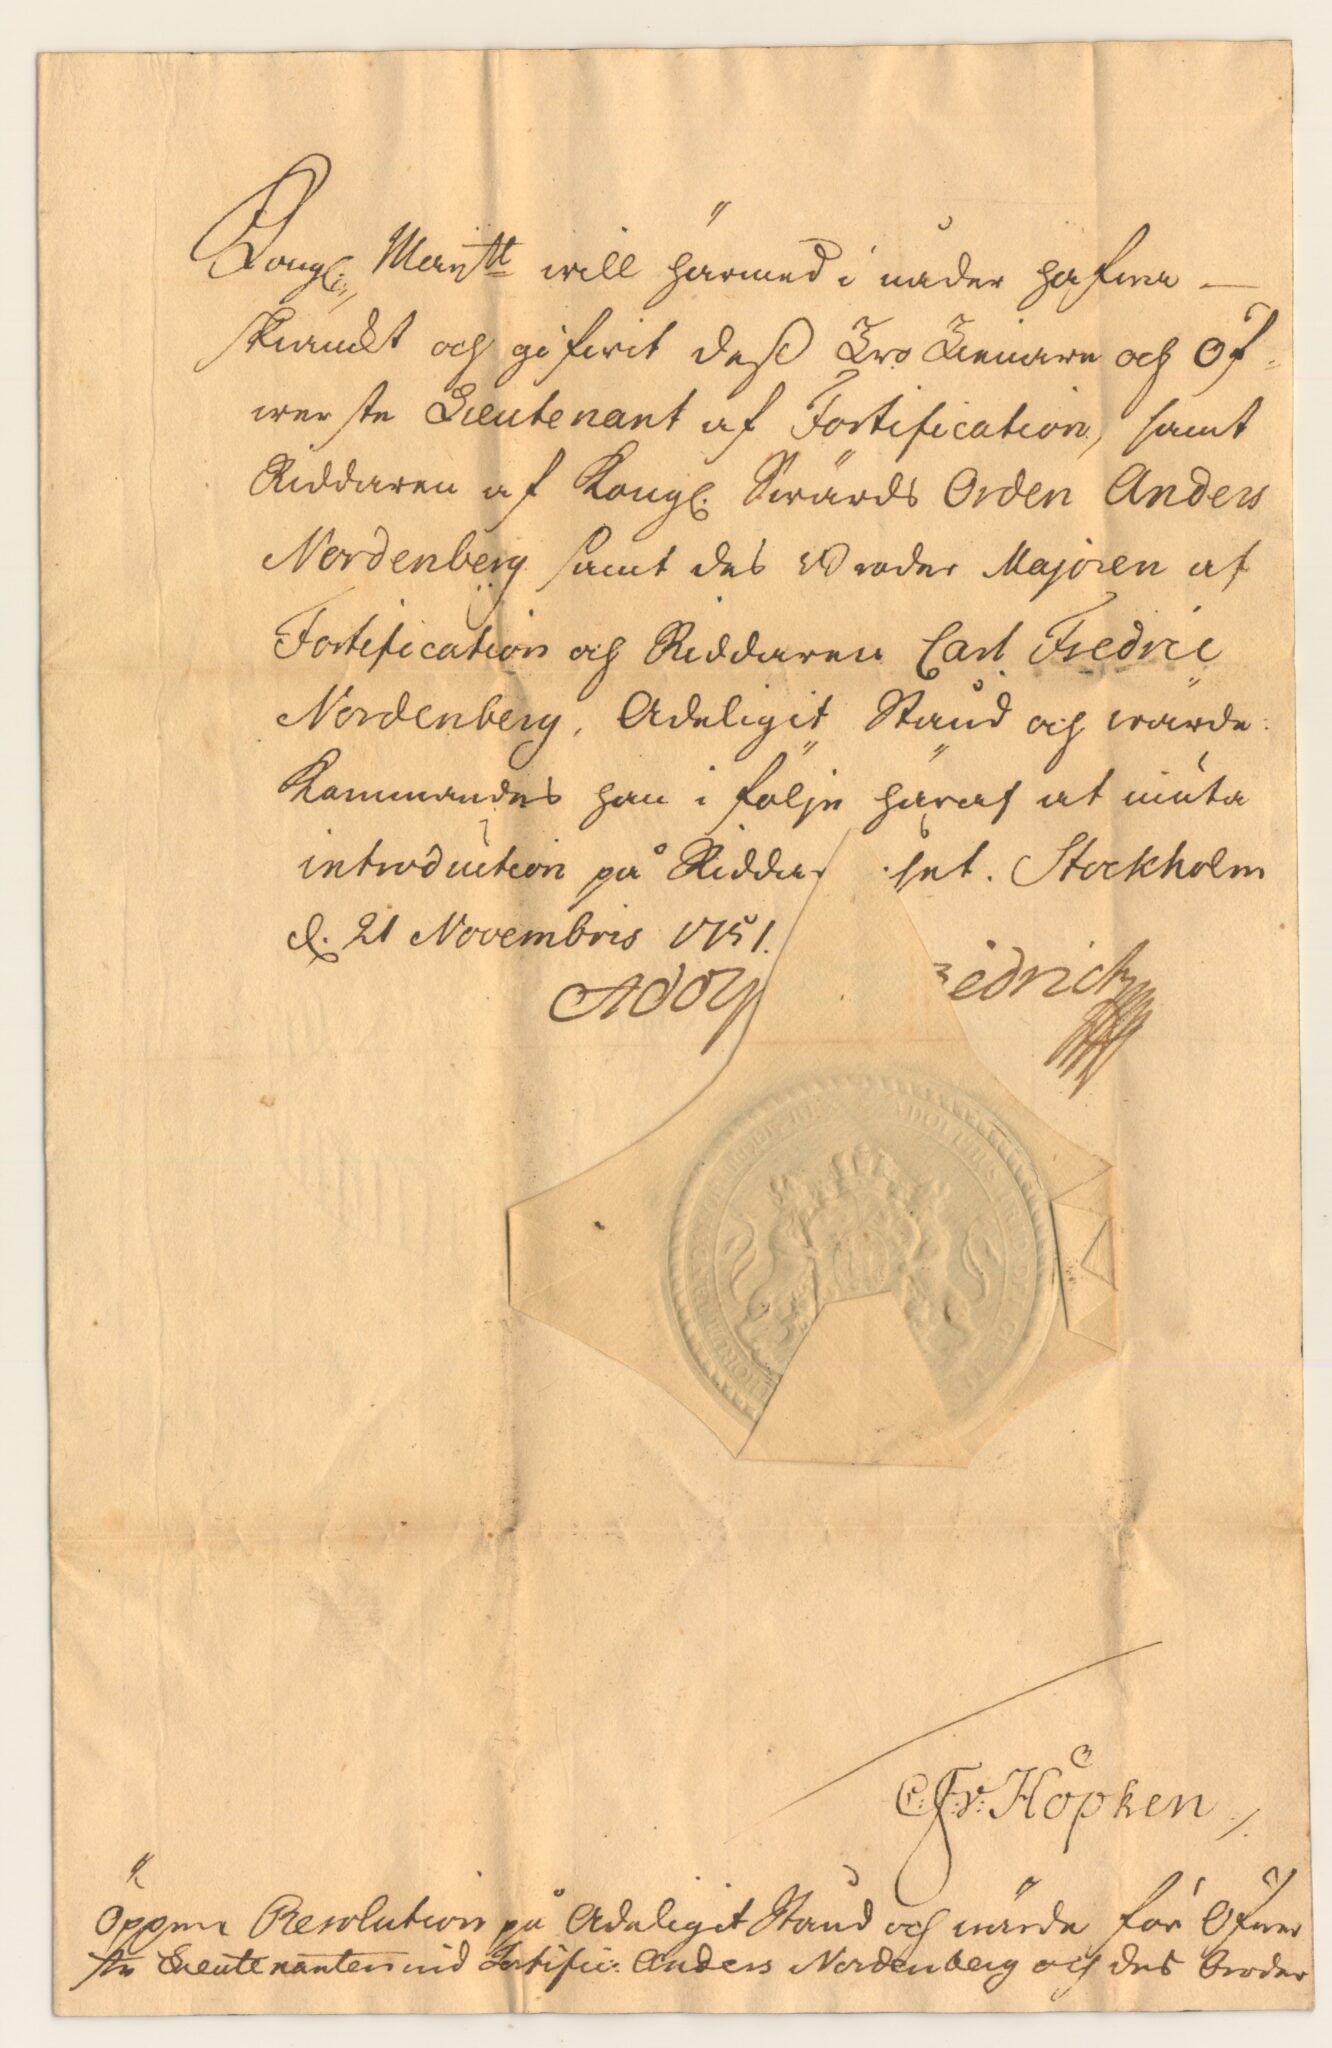 Kongl. Maij:tt will härmed i nåder hafwa —
skiänckt och gifwit deß Tro Tienare och Öf-
werste Lieutenant af Fortification, samt
Riddaren af Kongl. Swärds Orden Anders
Nordenberg samt des Broder Majoren af
Fortification och Riddaren Carl Fredric
Nordenberg, Adeligit Stånd och wärde:
Kommandes han i följe häraf at niuta
introduction på Riddar set. Stockholm
d. 21 Novembris 1751.
Adol redrich
ADOLPHUS FRIDERICUS
C: F: v: Höpken
Öppen Resolution på Adeligit Stånd och wärde för Öfwer
ste Lieutenanten wid Fortific: Anders Nordenberg och des Broder